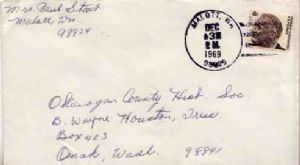 Mrs. Paul Stout
Malott, Wn
98829
MALOTT, WA.
DEC
13
P. M.
1969
98829
Okanogan County Hist. Soc.
B. Wayne Houston, Treas
Box 403
Omak, Wash. 98841